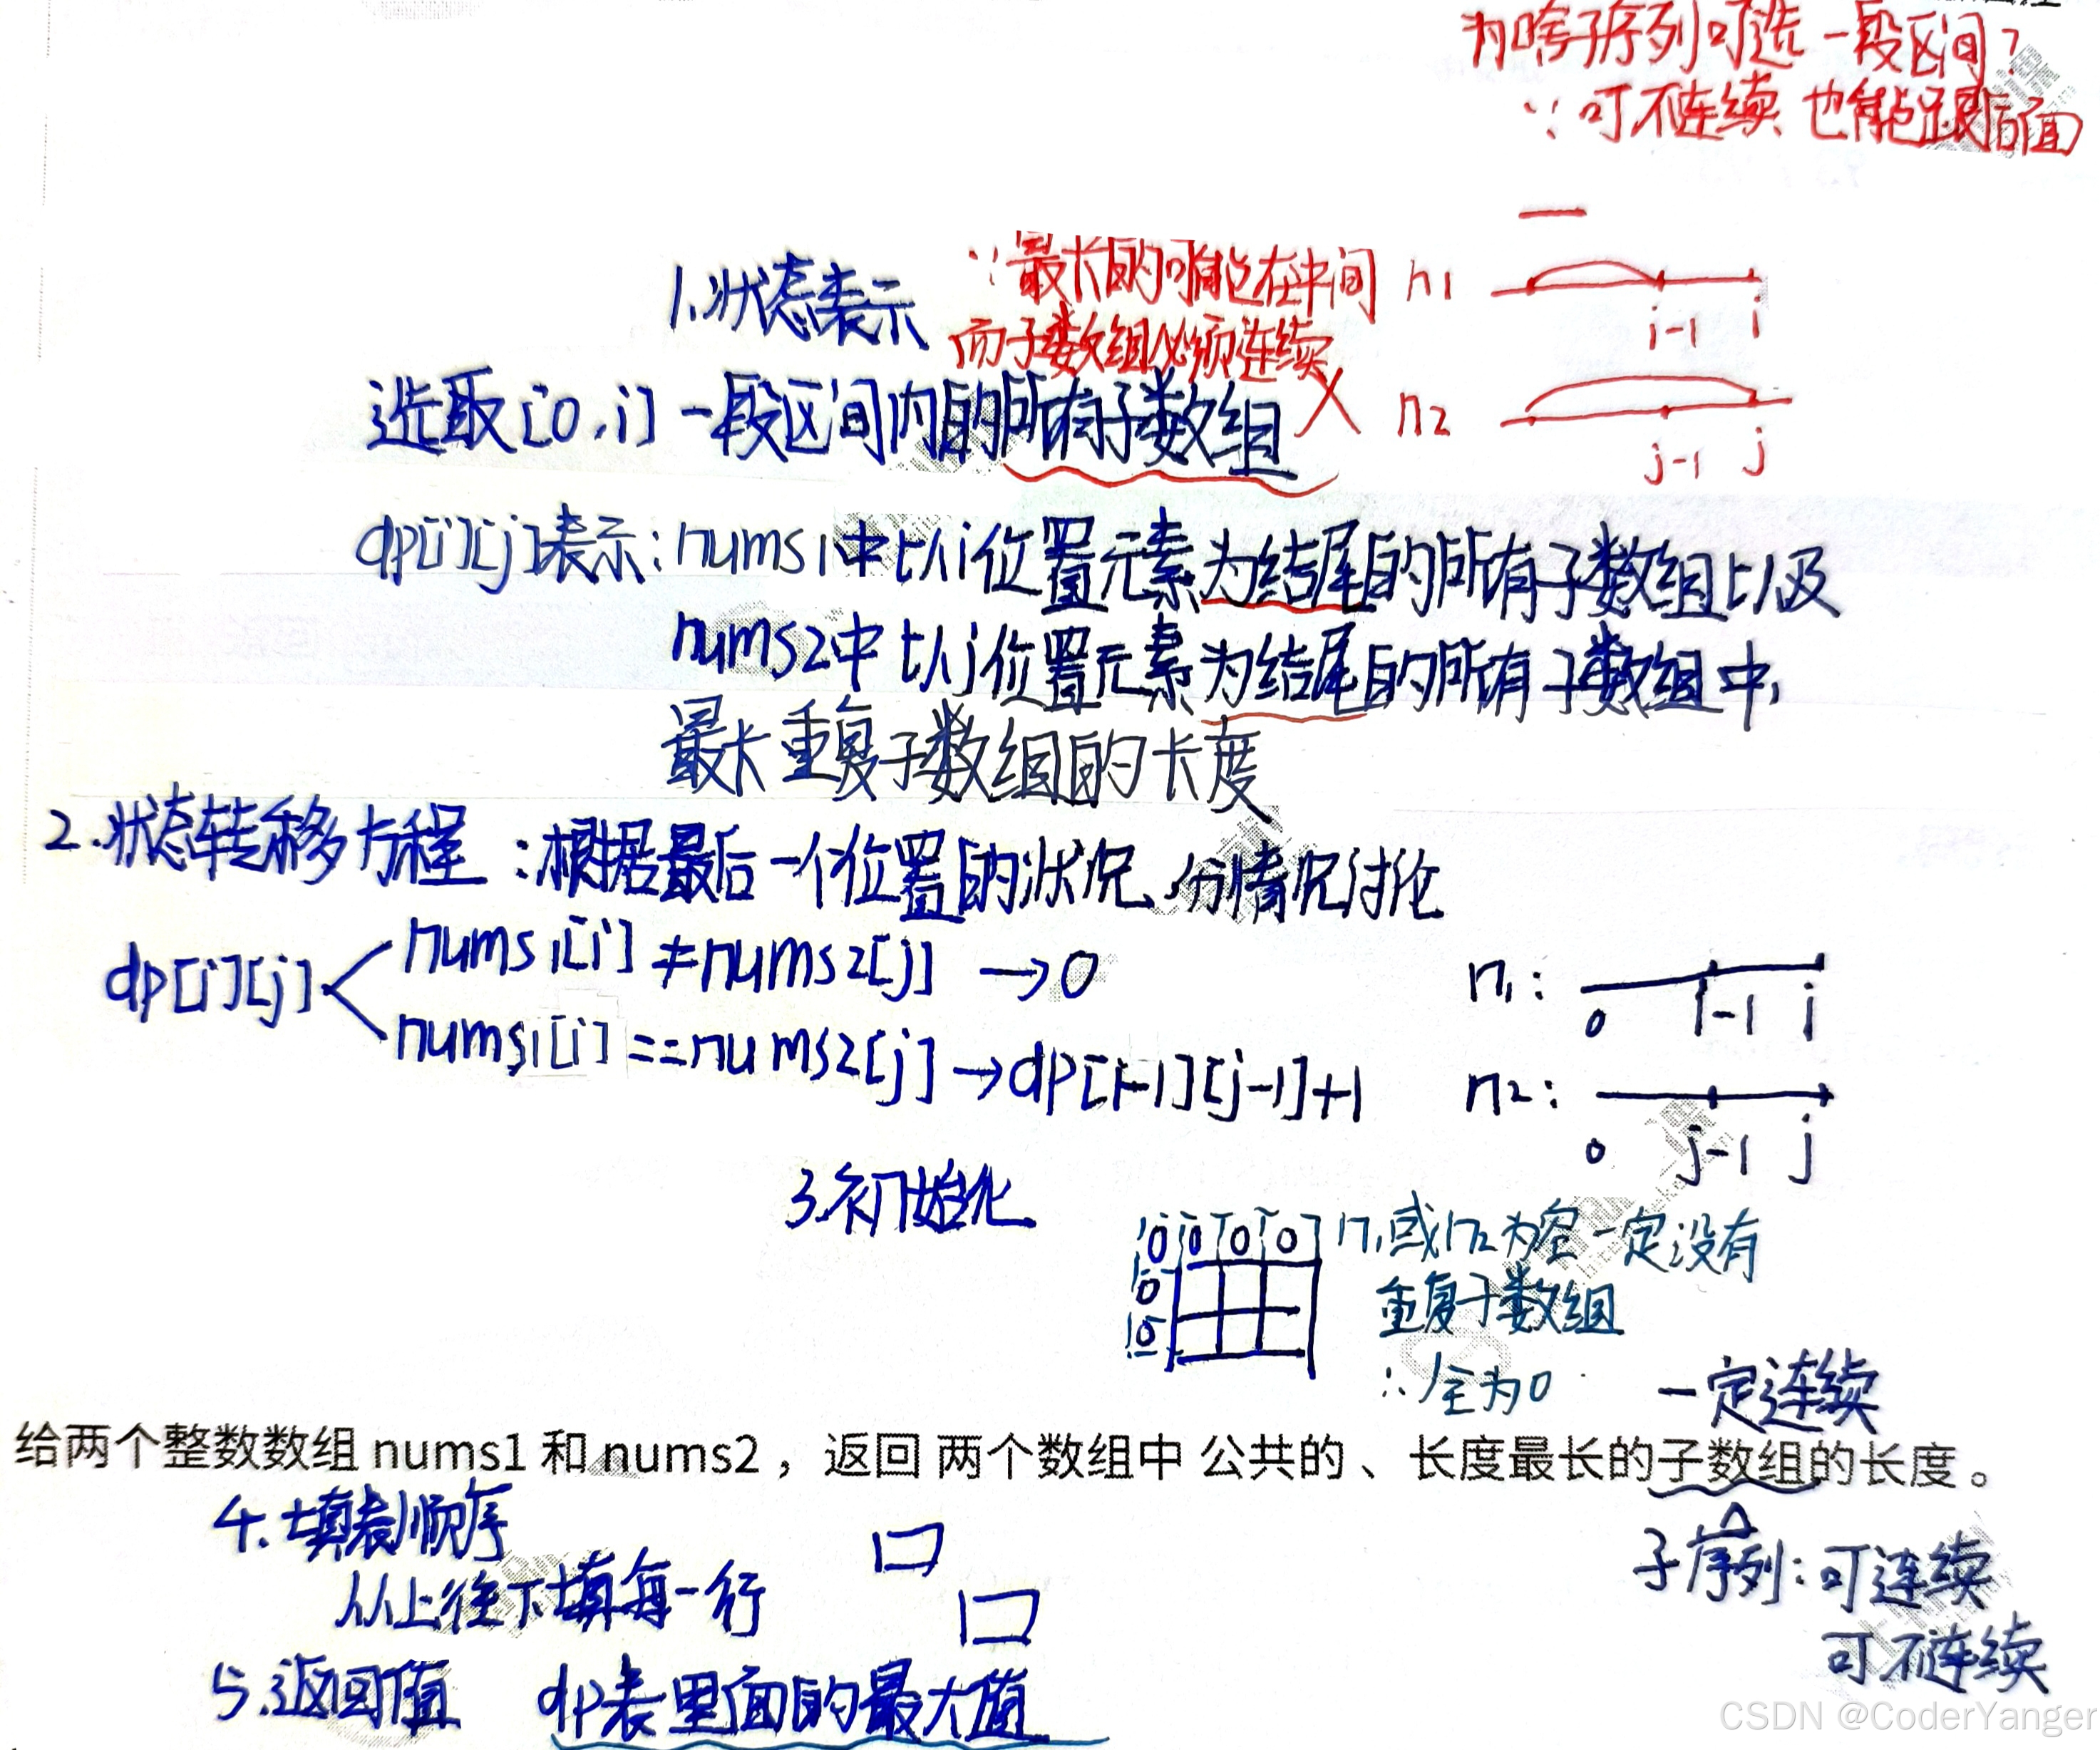 为啥子序列可选一段区间？
∵可不连续 也能跟后面
1.状态表示
∵最长的可能在中间
而子数组必须连续
n1
i-1 i
选取[0,i]一段区间内的所有子数组 X
n2
j-1 j
dp[i][j]表示:nums1中以i位置元素为结尾的所有子数组以及
nums2中以j位置元素为结尾的所有子数组中,
最长重复子数组的长度
2.状态转移方程:根据最后一个位置的状况、分情况讨论
dp[i][j]
nums1[i]≠nums2[j] →0
nums1[i]==nums2[j]→dp[i-1][j-1]+1
n1:
0 i-1 i
n2:
0 j-1 j
3.初始化
0 0 0 0
0
0
n1或n2为空一定没有
重复子数组
∴全为0
一定连续
给两个整数数组 nums1 和 nums2 ，返回 两个数组中 公共的 、长度最长的子数组的长度 。
4.填表顺序
从上往下填每一行
子序列:可连续
可不连续
5.返回值 dp表里面的最大值
CSDN @CoderYanger